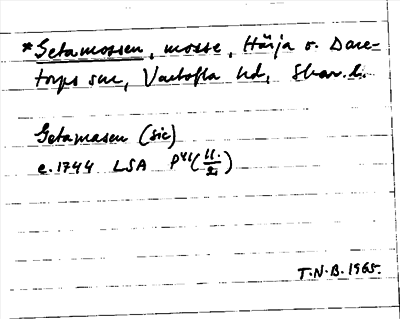 *Getamossen, mosse, Härja o. Dare-
torps snr, Vartofta hd, Skar. l.
Getamasen (sic)
e. 1744 LSA P41(11/2)
T.N.B. 1965.